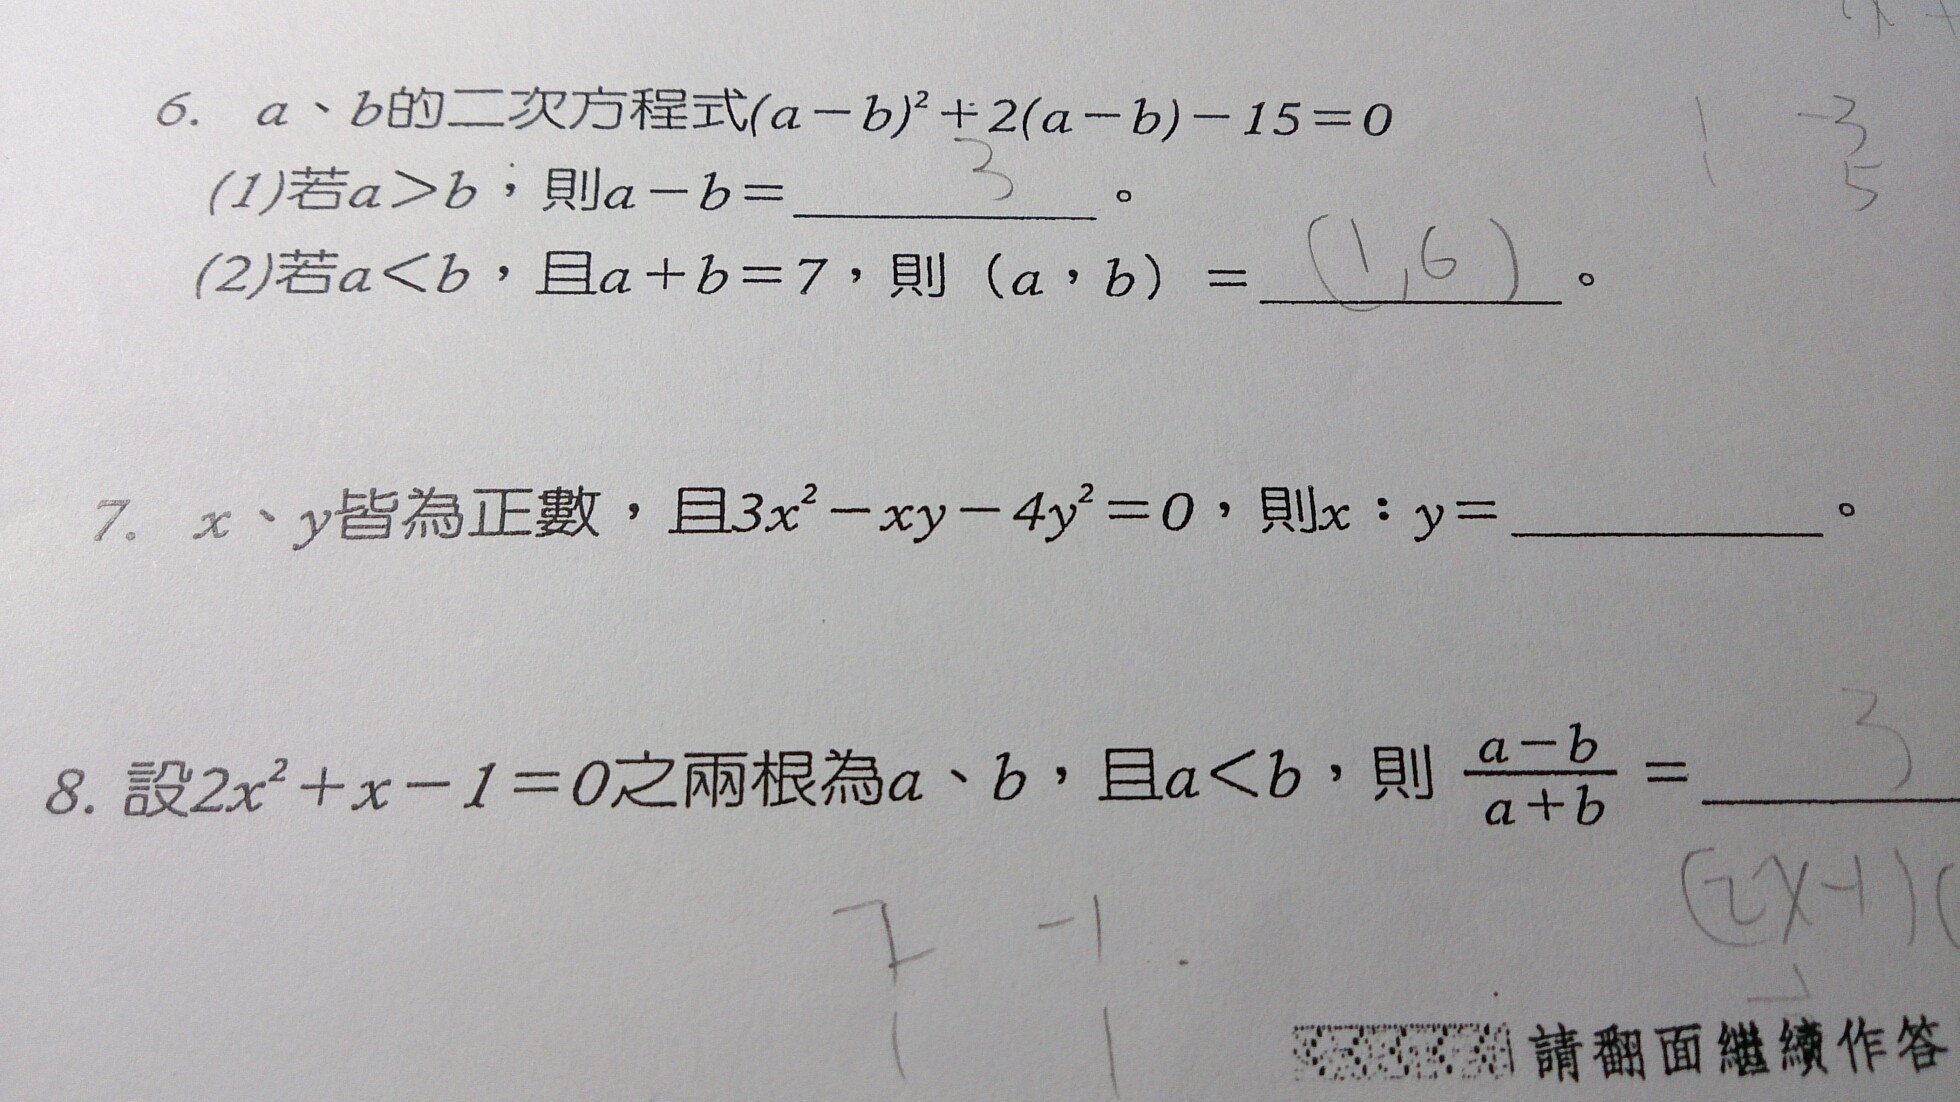 6. a、b的二次方程式(a－b)²＋2(a－b)－15＝0
1 -3
1 5
(1)若a＞b，則a－b＝ 3 。
(2)若a＜b，且a＋b＝7，則（a，b）＝ (1,6) 。
7. x、y皆為正數，且3x²－xy－4y²＝0，則x：y＝________。
8. 設2x²＋x－1＝0之兩根為a、b，且a＜b，則 (a－b)/(a＋b) ＝ 3
(2x-1)(
-1
1 1
請翻面繼續作答